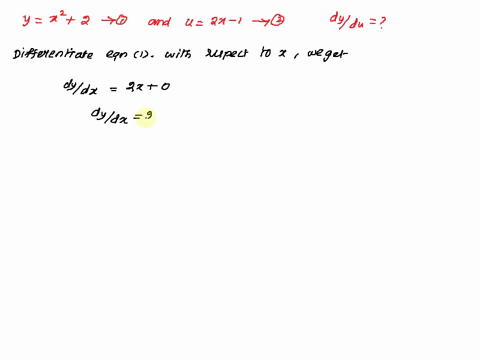 y = x² + 2 → ① and u = 2x - 1 → ② dy/du = ?
Differentiate eqn (1). with respect to x, we get
dy/dx = 2x + 0
dy/dx =